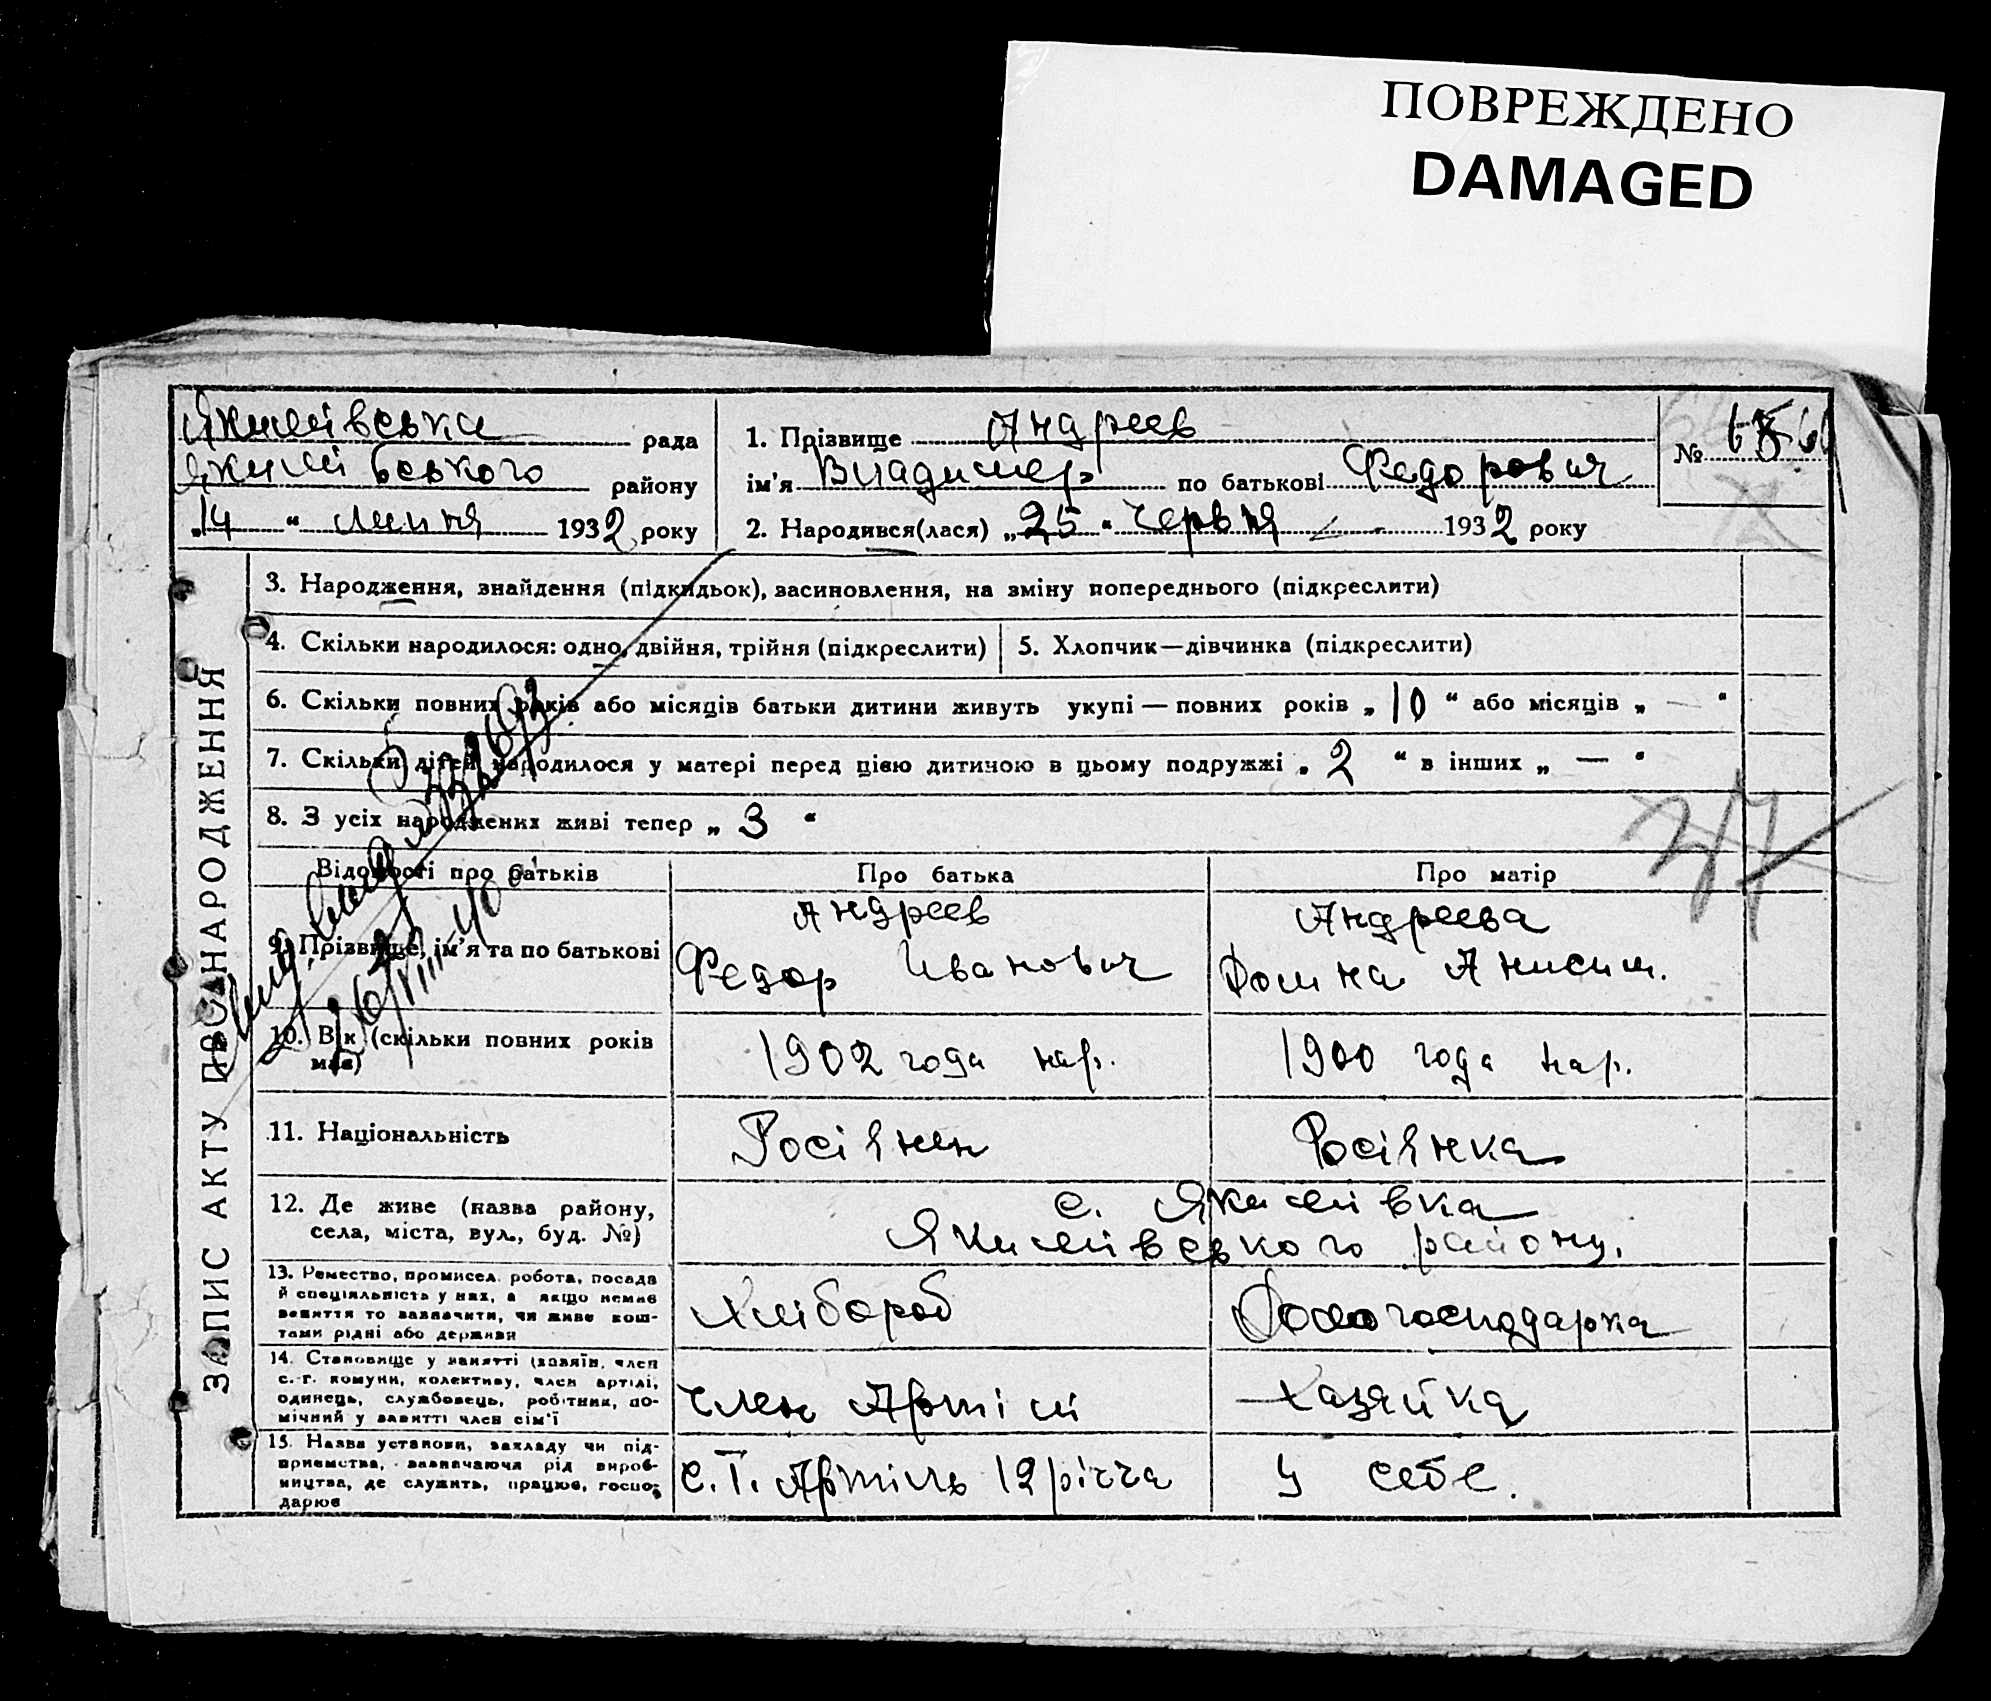 ПОВРЕЖДЕНО
DAMAGED
Якимівська рада
Якимівського району
„14“ липня 1932 року
1. Прізвище Андреев
ім'я Владимер по батькові Федорович
№
2. Народився(лася) „25“ Червня 1932 року
ЗАПИС АКТУ ПРО НАРОДЖЕННЯ
3. Народження, знайдення (підкидьок), засиновлення, на зміну попереднього (підкреслити)
4. Скільки народилося: одно, двійня, трійня (підкреслити)
5. Хлопчик—дівчинка (підкреслити)
6. Скільки повних років або місяців батьки дитини живуть укупі — повних років „10“ або місяців „—“
7. Скільки дітей народилося у матері перед цією дитиною в цьому подружжі „2“ в інших „—“
8. З усіх народжених живі тепер „3“
Відомості про батьків
Про батька
Про матір
9. Прізвище, ім'я та по батькові
Андреев
Федор Иванович
Андреева
Домна Анисим.
10. Вік (скільки повних років має)
1902 года нар.
1900 года нар.
11. Національність
Росіянен
Росіянка
12. Де живе (назва району,
села, міста, вул., буд. №)
с. Якимівка
Якимівського району.
13. Ремество, промисел, робота, посада
й спеціяльність у них, а якщо немає
заняття то зазначити, чи живе кош-
тами рідні або держави
Хлібороб
Домогосподарка
14. Становище у занятті (хазяїн, член
с.-г. комуни, колективу, член артілі,
одинець, службовець, робітник, по-
мічний у занятті член сім'ї
член Артілі
Хазяйка
15. Назва установи, закладу чи під-
приємства, зазначаючи рід вироб-
ництва, де служить, працює, госпо-
дарює
с.Г. Артіль 12 річча
У себе.